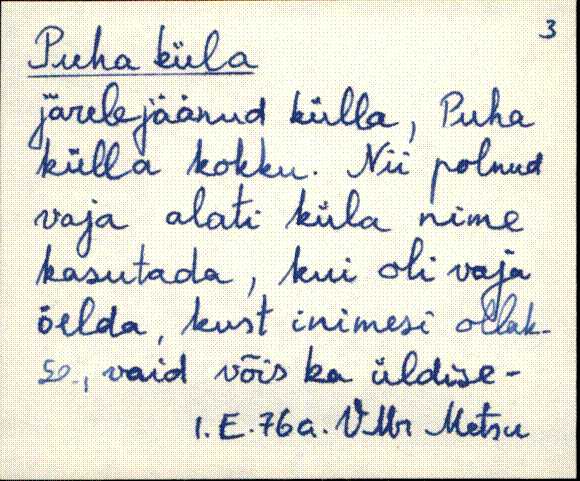 3
Puha küla
järelejäänud külla, Puha
külla kokku. Nii polnud
vaja alati küla nime
kasutada, kui oli vaja
öelda, kust inimesi ollak-
se, vaid võis ka üldise-
I.E.76a. VMr Metsu